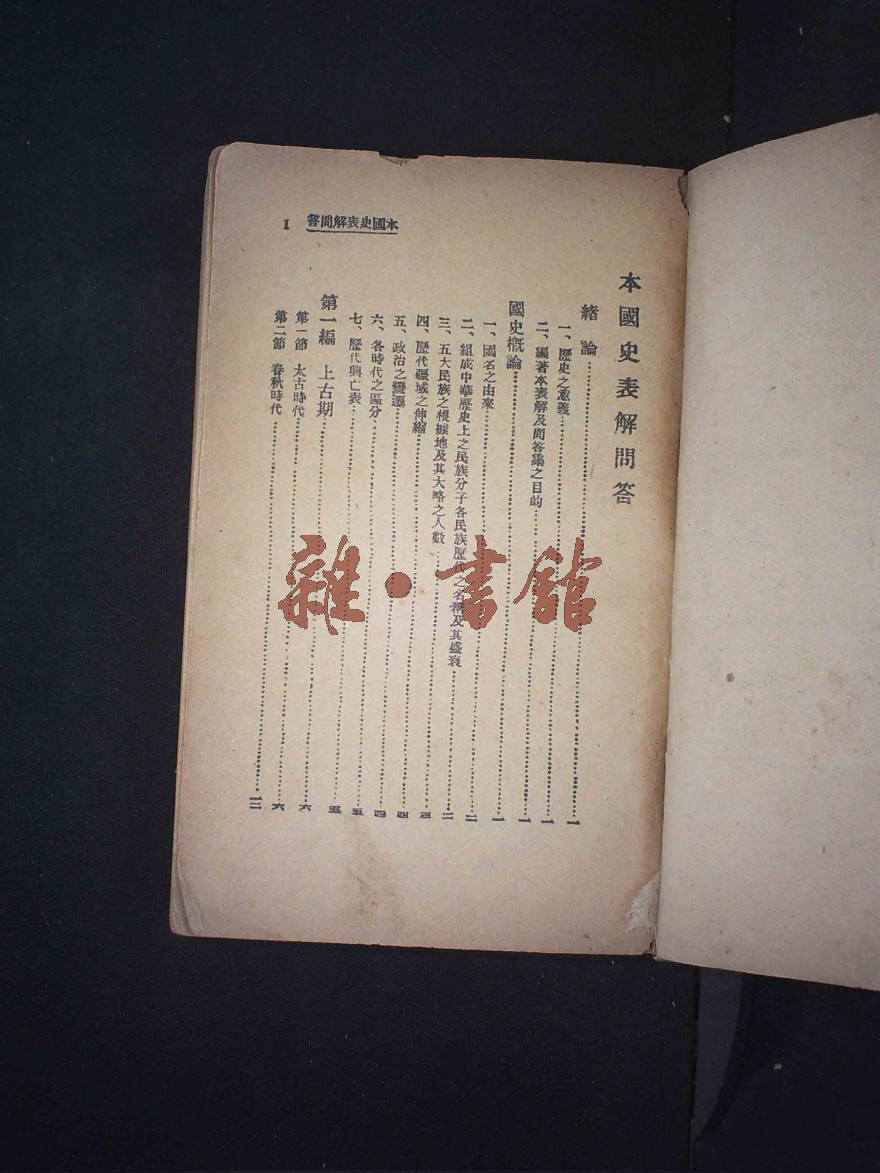 本國史表解問答
1
本國史表解問答
緒論……一
一、歷史之意義……一
二、編著本表解及問答集之目的……一
國史概論……一
一、國名之由來……二
二、組成中華歷史上之民族分子各民族歷代之名稱及其盛衰……二
三、五大民族之根據地及其大略之人數……三
四、歷代疆域之伸縮……四
五、政治之變遷……四
六、各時代之區分……五
七、歷代興亡表……五
第一編 上古期……六
第一節 太古時代……六
第二節 春秋時代……一二
雜·書館